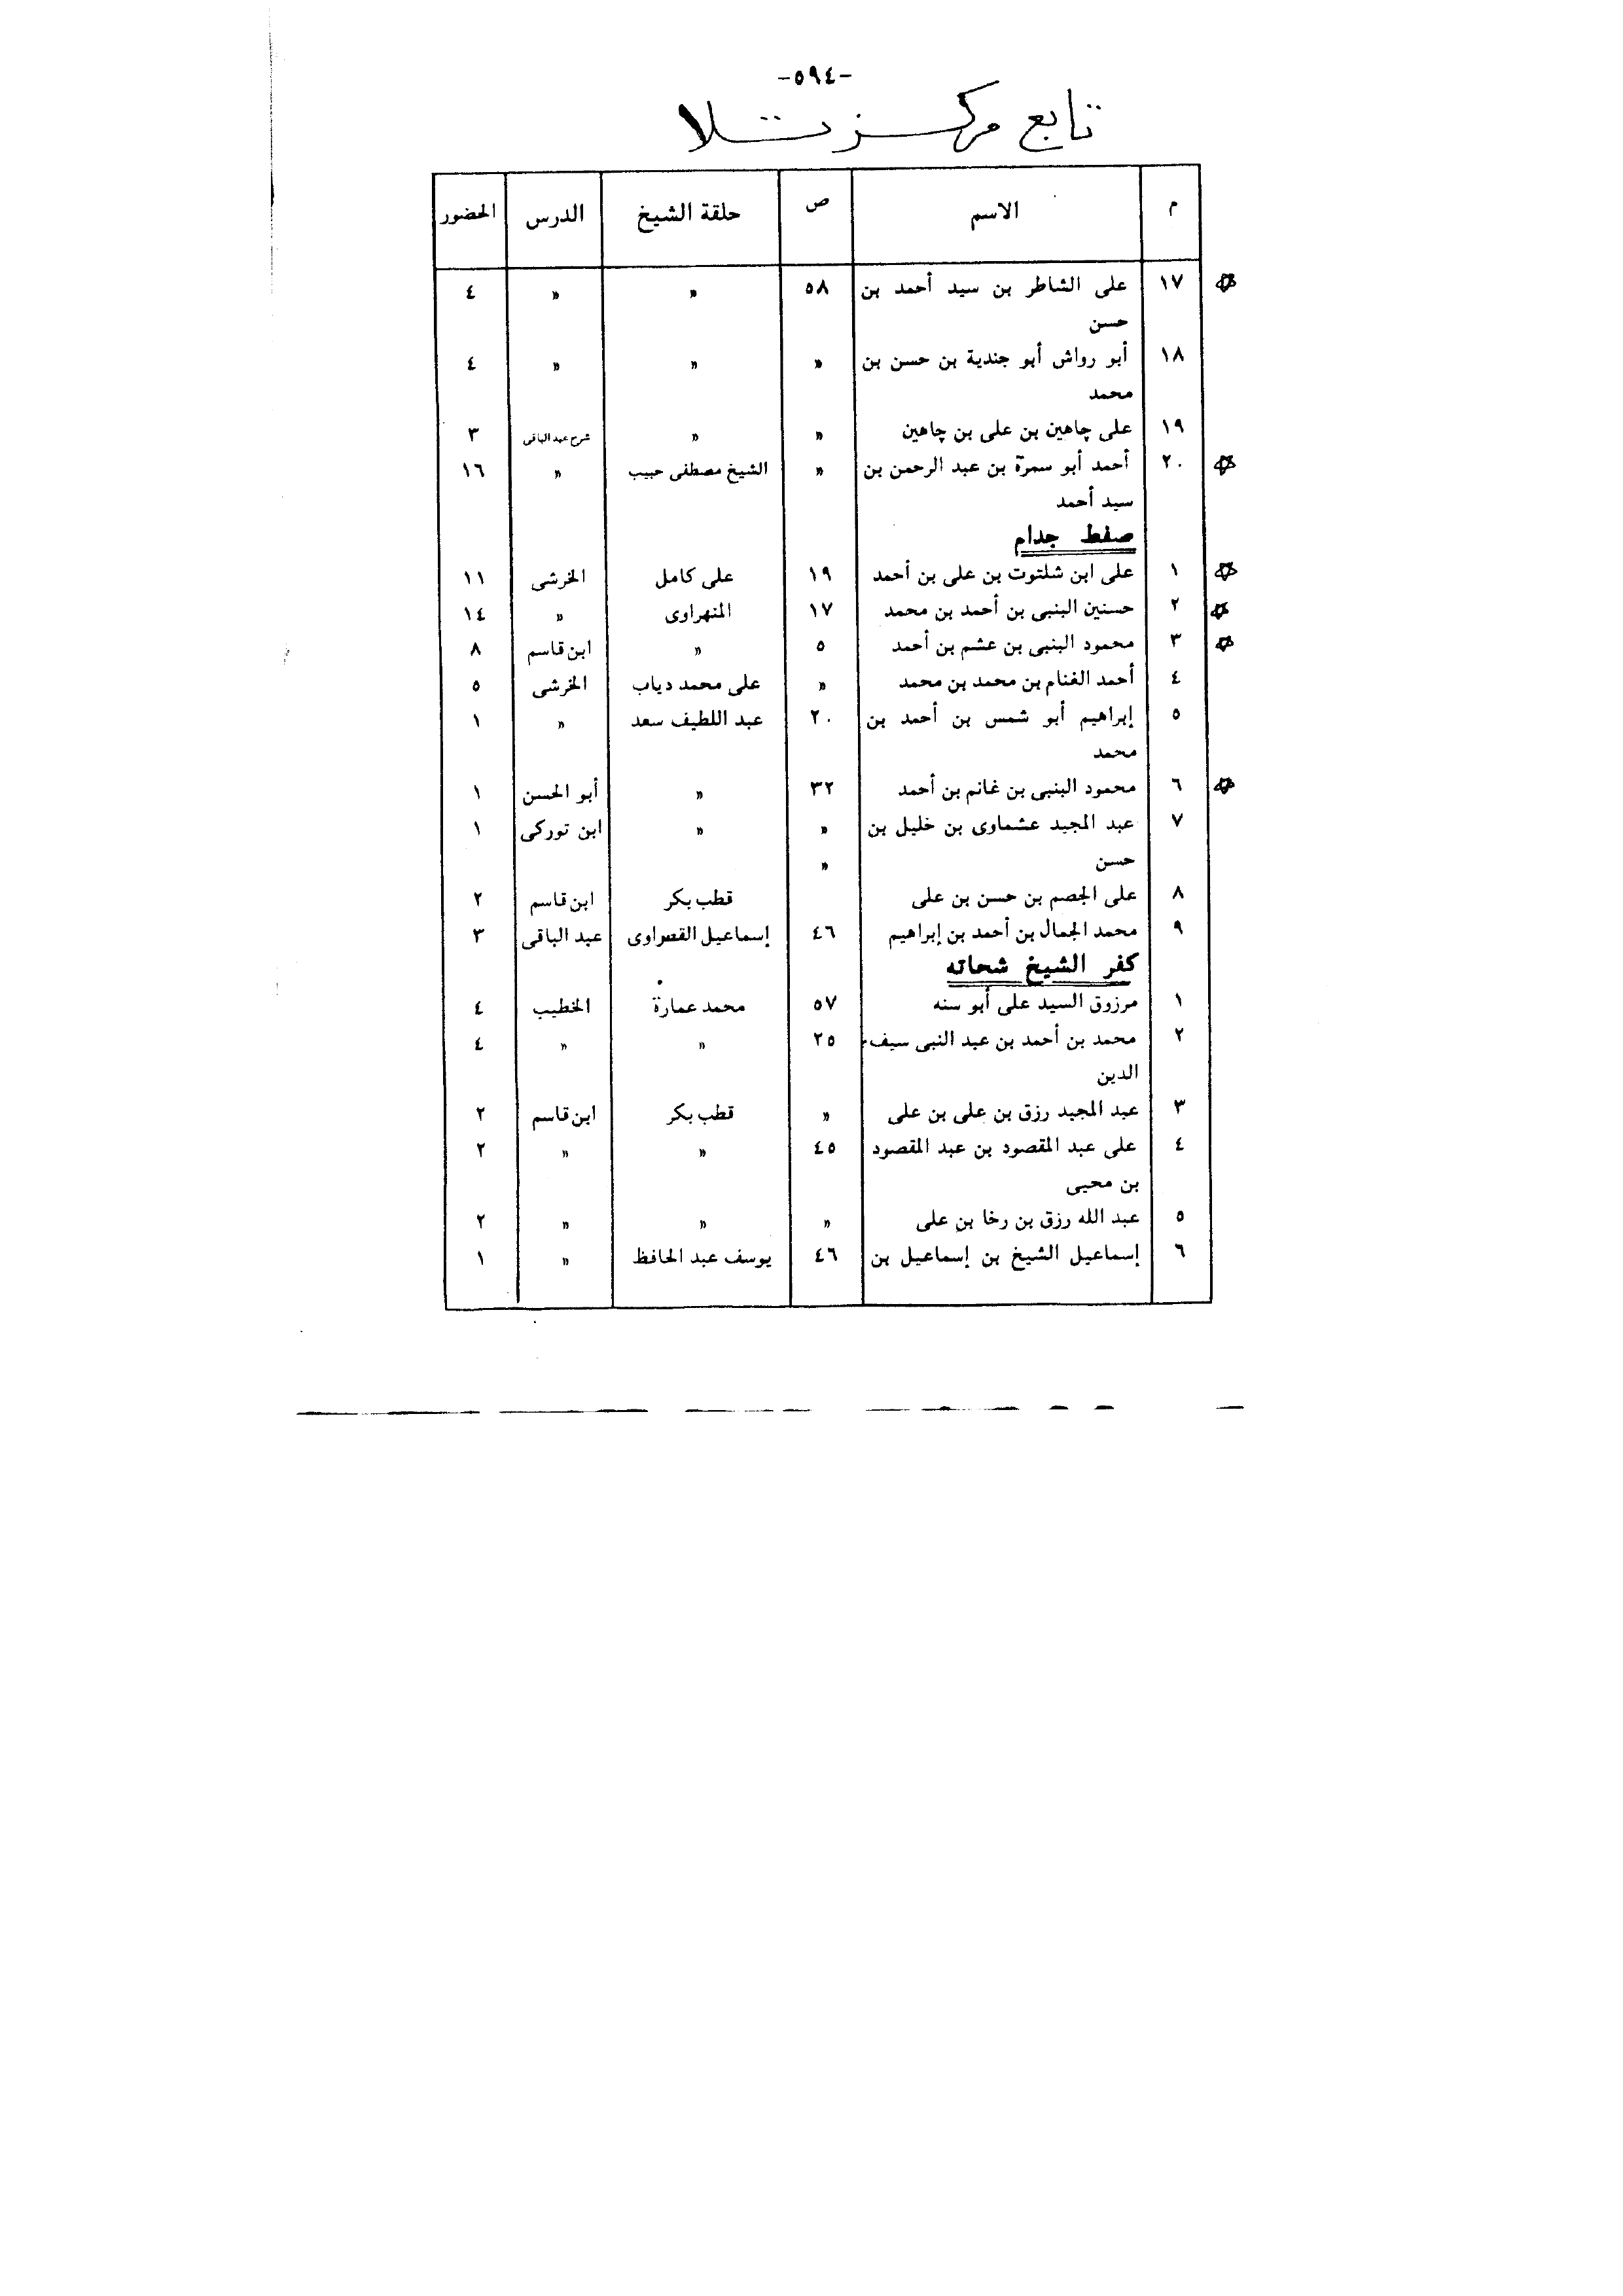 -٥٩٤-
تابع مركز تلا
م الاسم ص حلقة الشيخ الدرس الحضور
١٧ على الشاطر بن سيد أحمد بن ٥٨ » » ٤
حسن
١٨ أبو رواش أبو جندية بن حسن بن » » » ٤
محمد
١٩ على چاهين بن على بن چاهين » » شرح عبد الباقى ٣
٢٠ أحمد أبو سمرة بن عبد الرحمن بن » الشيخ مصطفى حبيب » ١٦
سيد أحمد
صفط جدام
١ على ابن شلتوت بن على بن أحمد ١٩ على كامل الخرشى ١١
٢ حسنين البنبى بن أحمد بن محمد ١٧ المنهراوى » ١٤
٣ محمود البنبى بن عشم بن أحمد ٥ » ابن قاسم ٨
٤ أحمد الغنام بن محمد بن محمد » على محمد دياب الخرشى ٥
٥ إبراهيم أبو شمس بن أحمد بن ٢٠ عبد اللطيف سعد » ١
محمد
٦ محمود البنبى بن غانم بن أحمد ٣٢ » أبو الحسن ١
٧ عبد المجيد عشماوى بن خليل بن » » ابن توركى ١
حسن »
٨ على الجصم بن حسن بن على قطب بكر ابن قاسم ٢
٩ محمد الجمال بن أحمد بن إبراهيم ٤٦ إسماعيل القصراوى عبد الباقى ٣
كفر الشيخ شحاته
١ مرزوق السيد على أبو سنه ٥٧ محمد عمارة الخطيب ٤
٢ محمد بن أحمد بن عبد النبى سيف ٢٥ » » ٤
الدين
٣ عبد المجيد رزق بن على بن على » قطب بكر ابن قاسم ٢
٤ على عبد المقصود بن عبد المقصود ٤٥ » » ٢
بن محيى
٥ عبد الله رزق بن رخا بن على » » » ٢
٦ إسماعيل الشيخ بن إسماعيل بن ٤٦ يوسف عبد الحافظ » ١